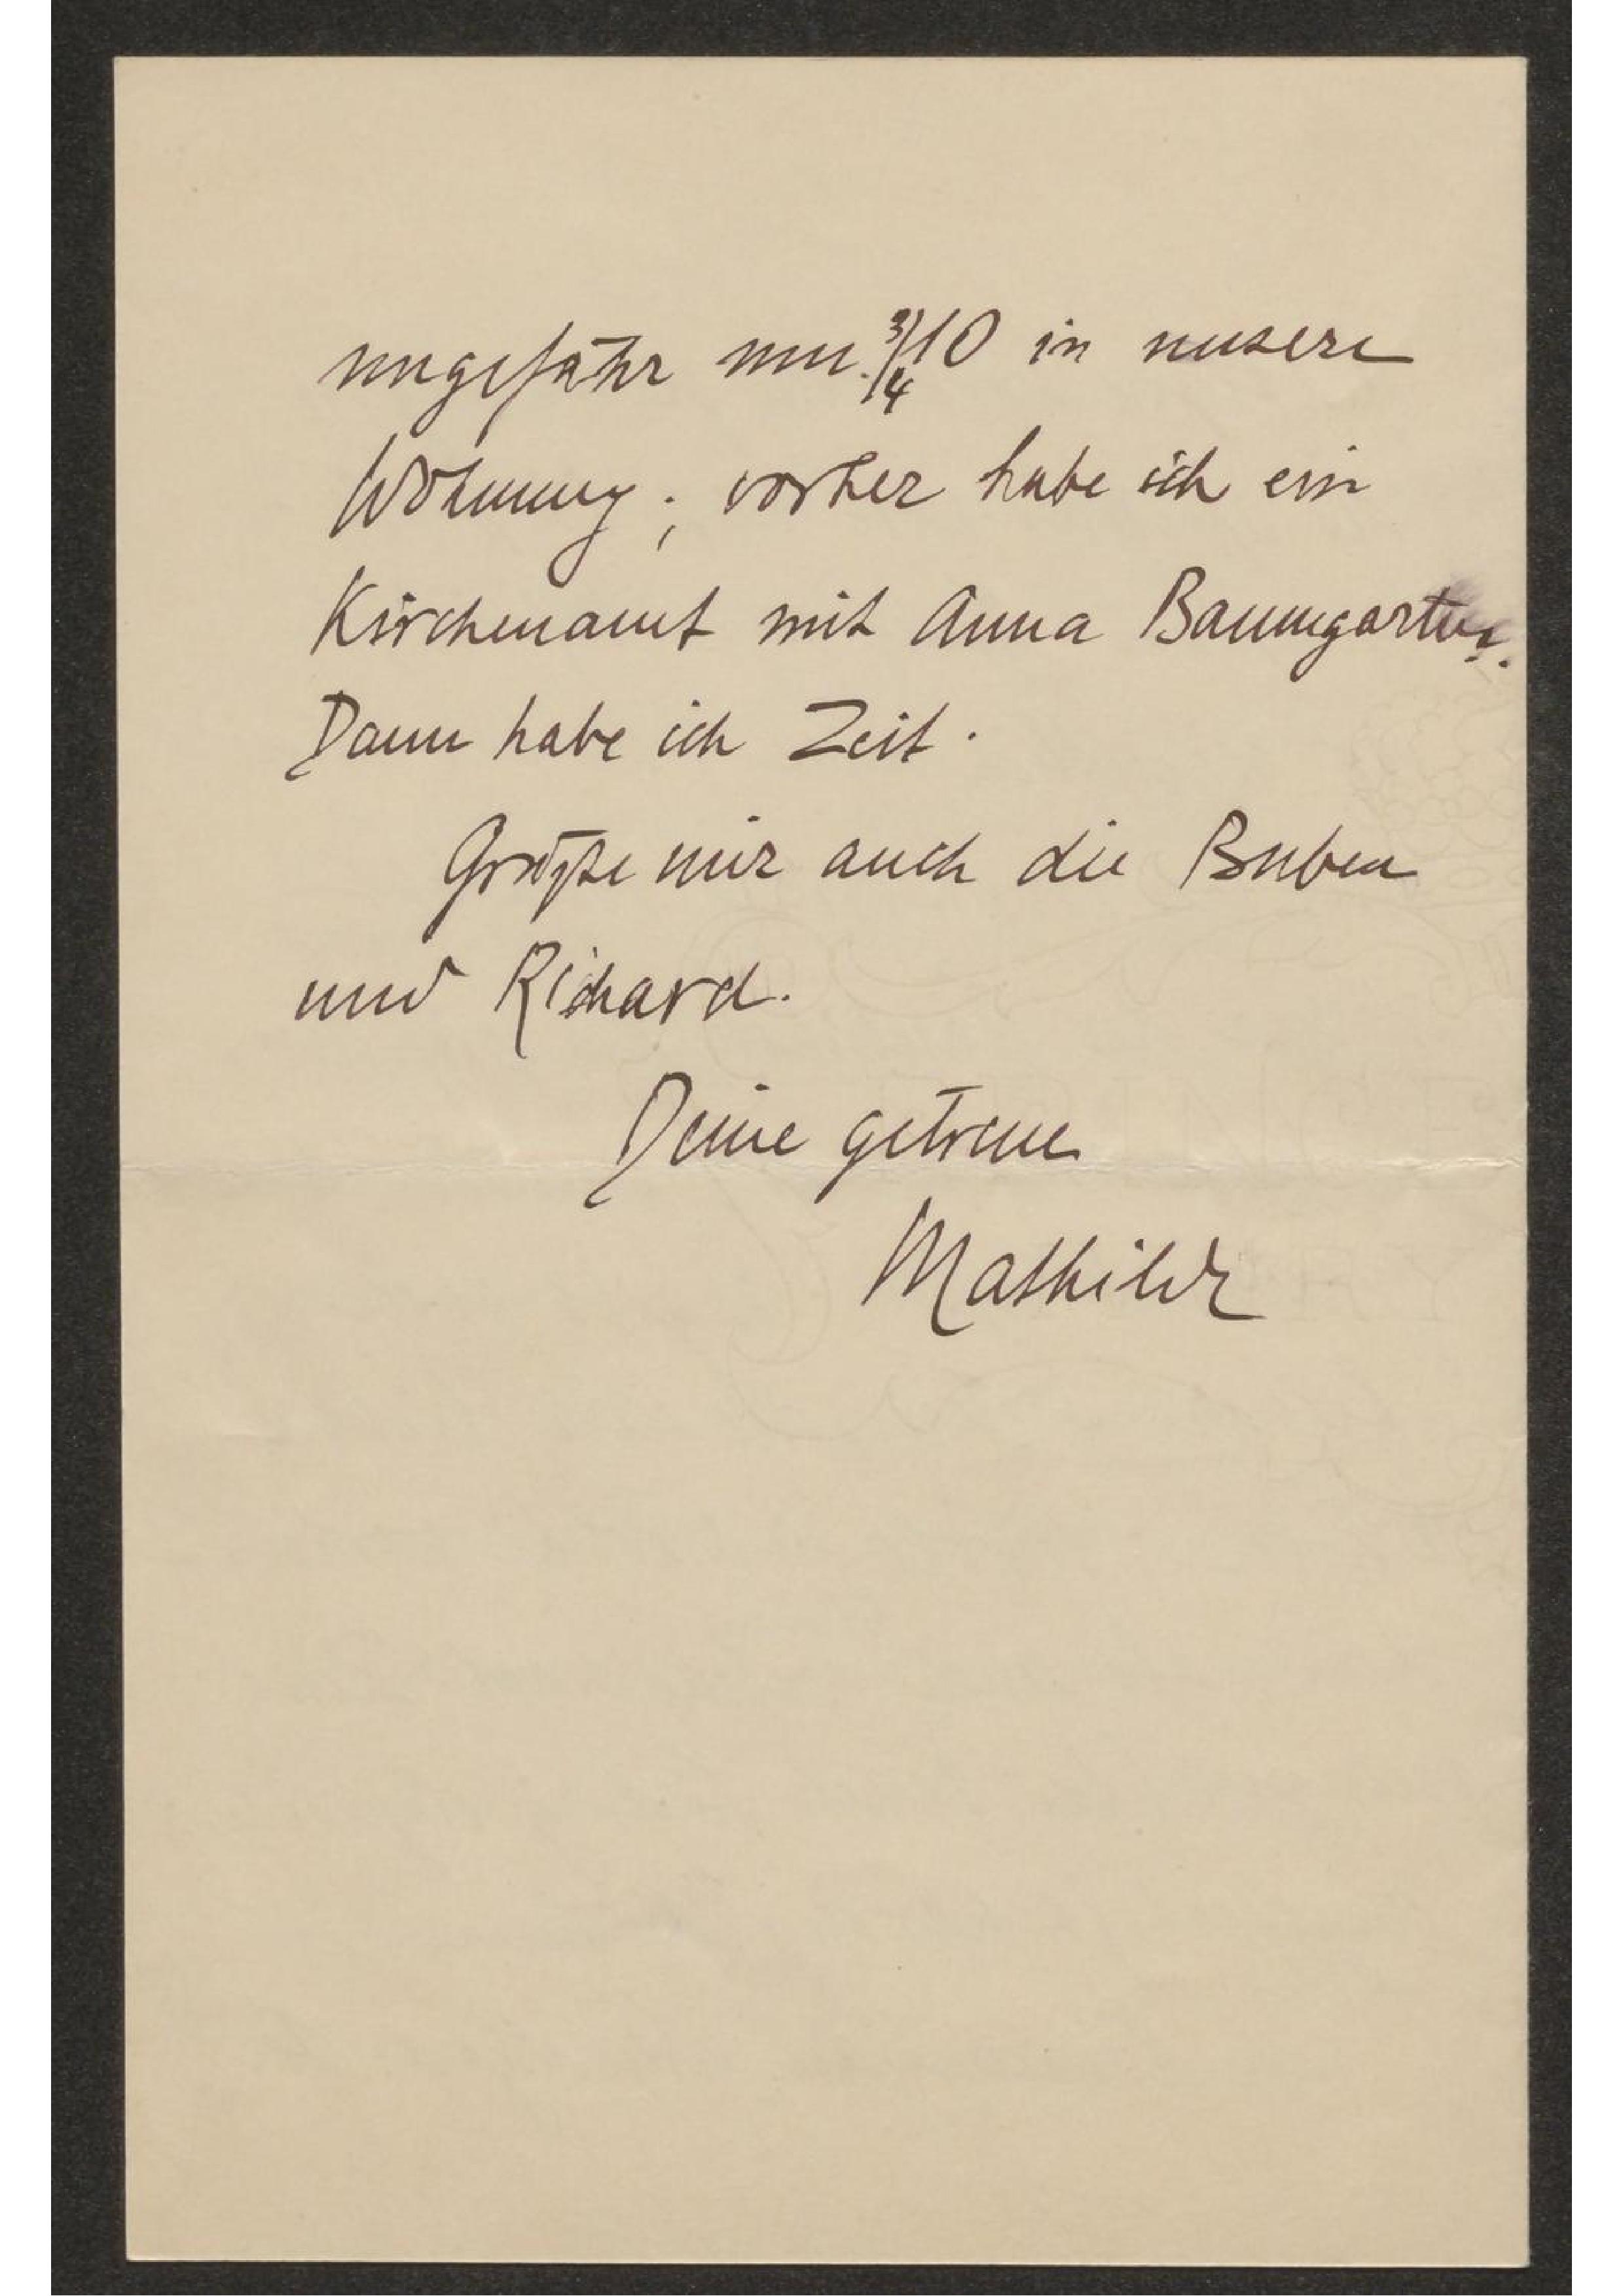 ungefähr um 3/4 10 in unsere
Wohnung; vorher habe ich ein
Kirchenamt mit Anna Baumgartner.
Dann habe ich Zeit.
Grüße mir auch die Buben
und Richard.
Deine getreue
Mathilde